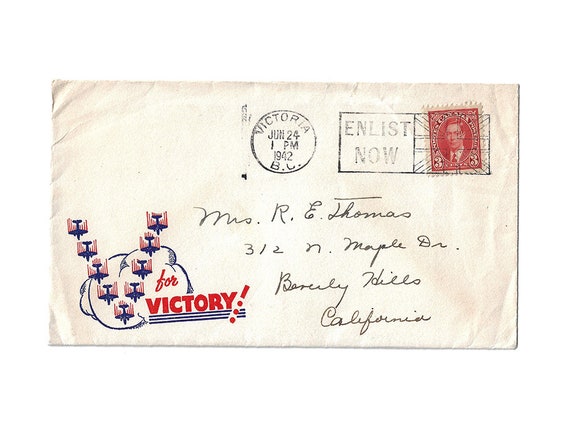 VICTORIA
JUN 24
1 PM
1942
B.C.
ENLIST
NOW
3 3
Mrs. R. E. Thomas
312 N. Maple Dr.
Beverly Hills
California
for
VICTORY!